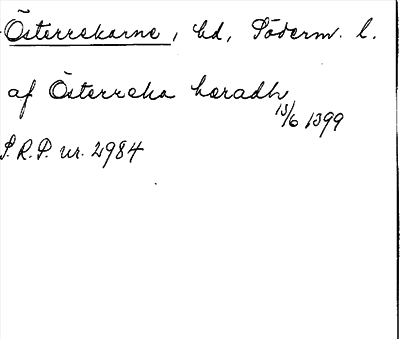 Österrekarne, hd, Söderm. l.
af Österreka haradh
13/6 1399
S.R.P. nr. 2984